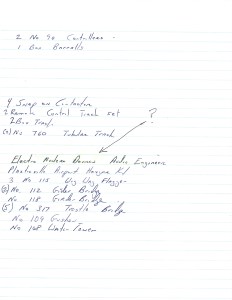 2 No 90 Controllers -
1 Box Barrells
4 Snap on Contactors
2 Remote Control Track set ?
2 Box Track.
(2) No 760 Tubular Track
Electro Modern Audio Engineers
Plasticville Airport Hangar Kit
3 No 115 Wig Wag Flagger
(2) No. 112 Girder Bridge
No 118 Girder Bridge
(5) No 317 Trestle Bridge
No 109
No 168 Water Tower